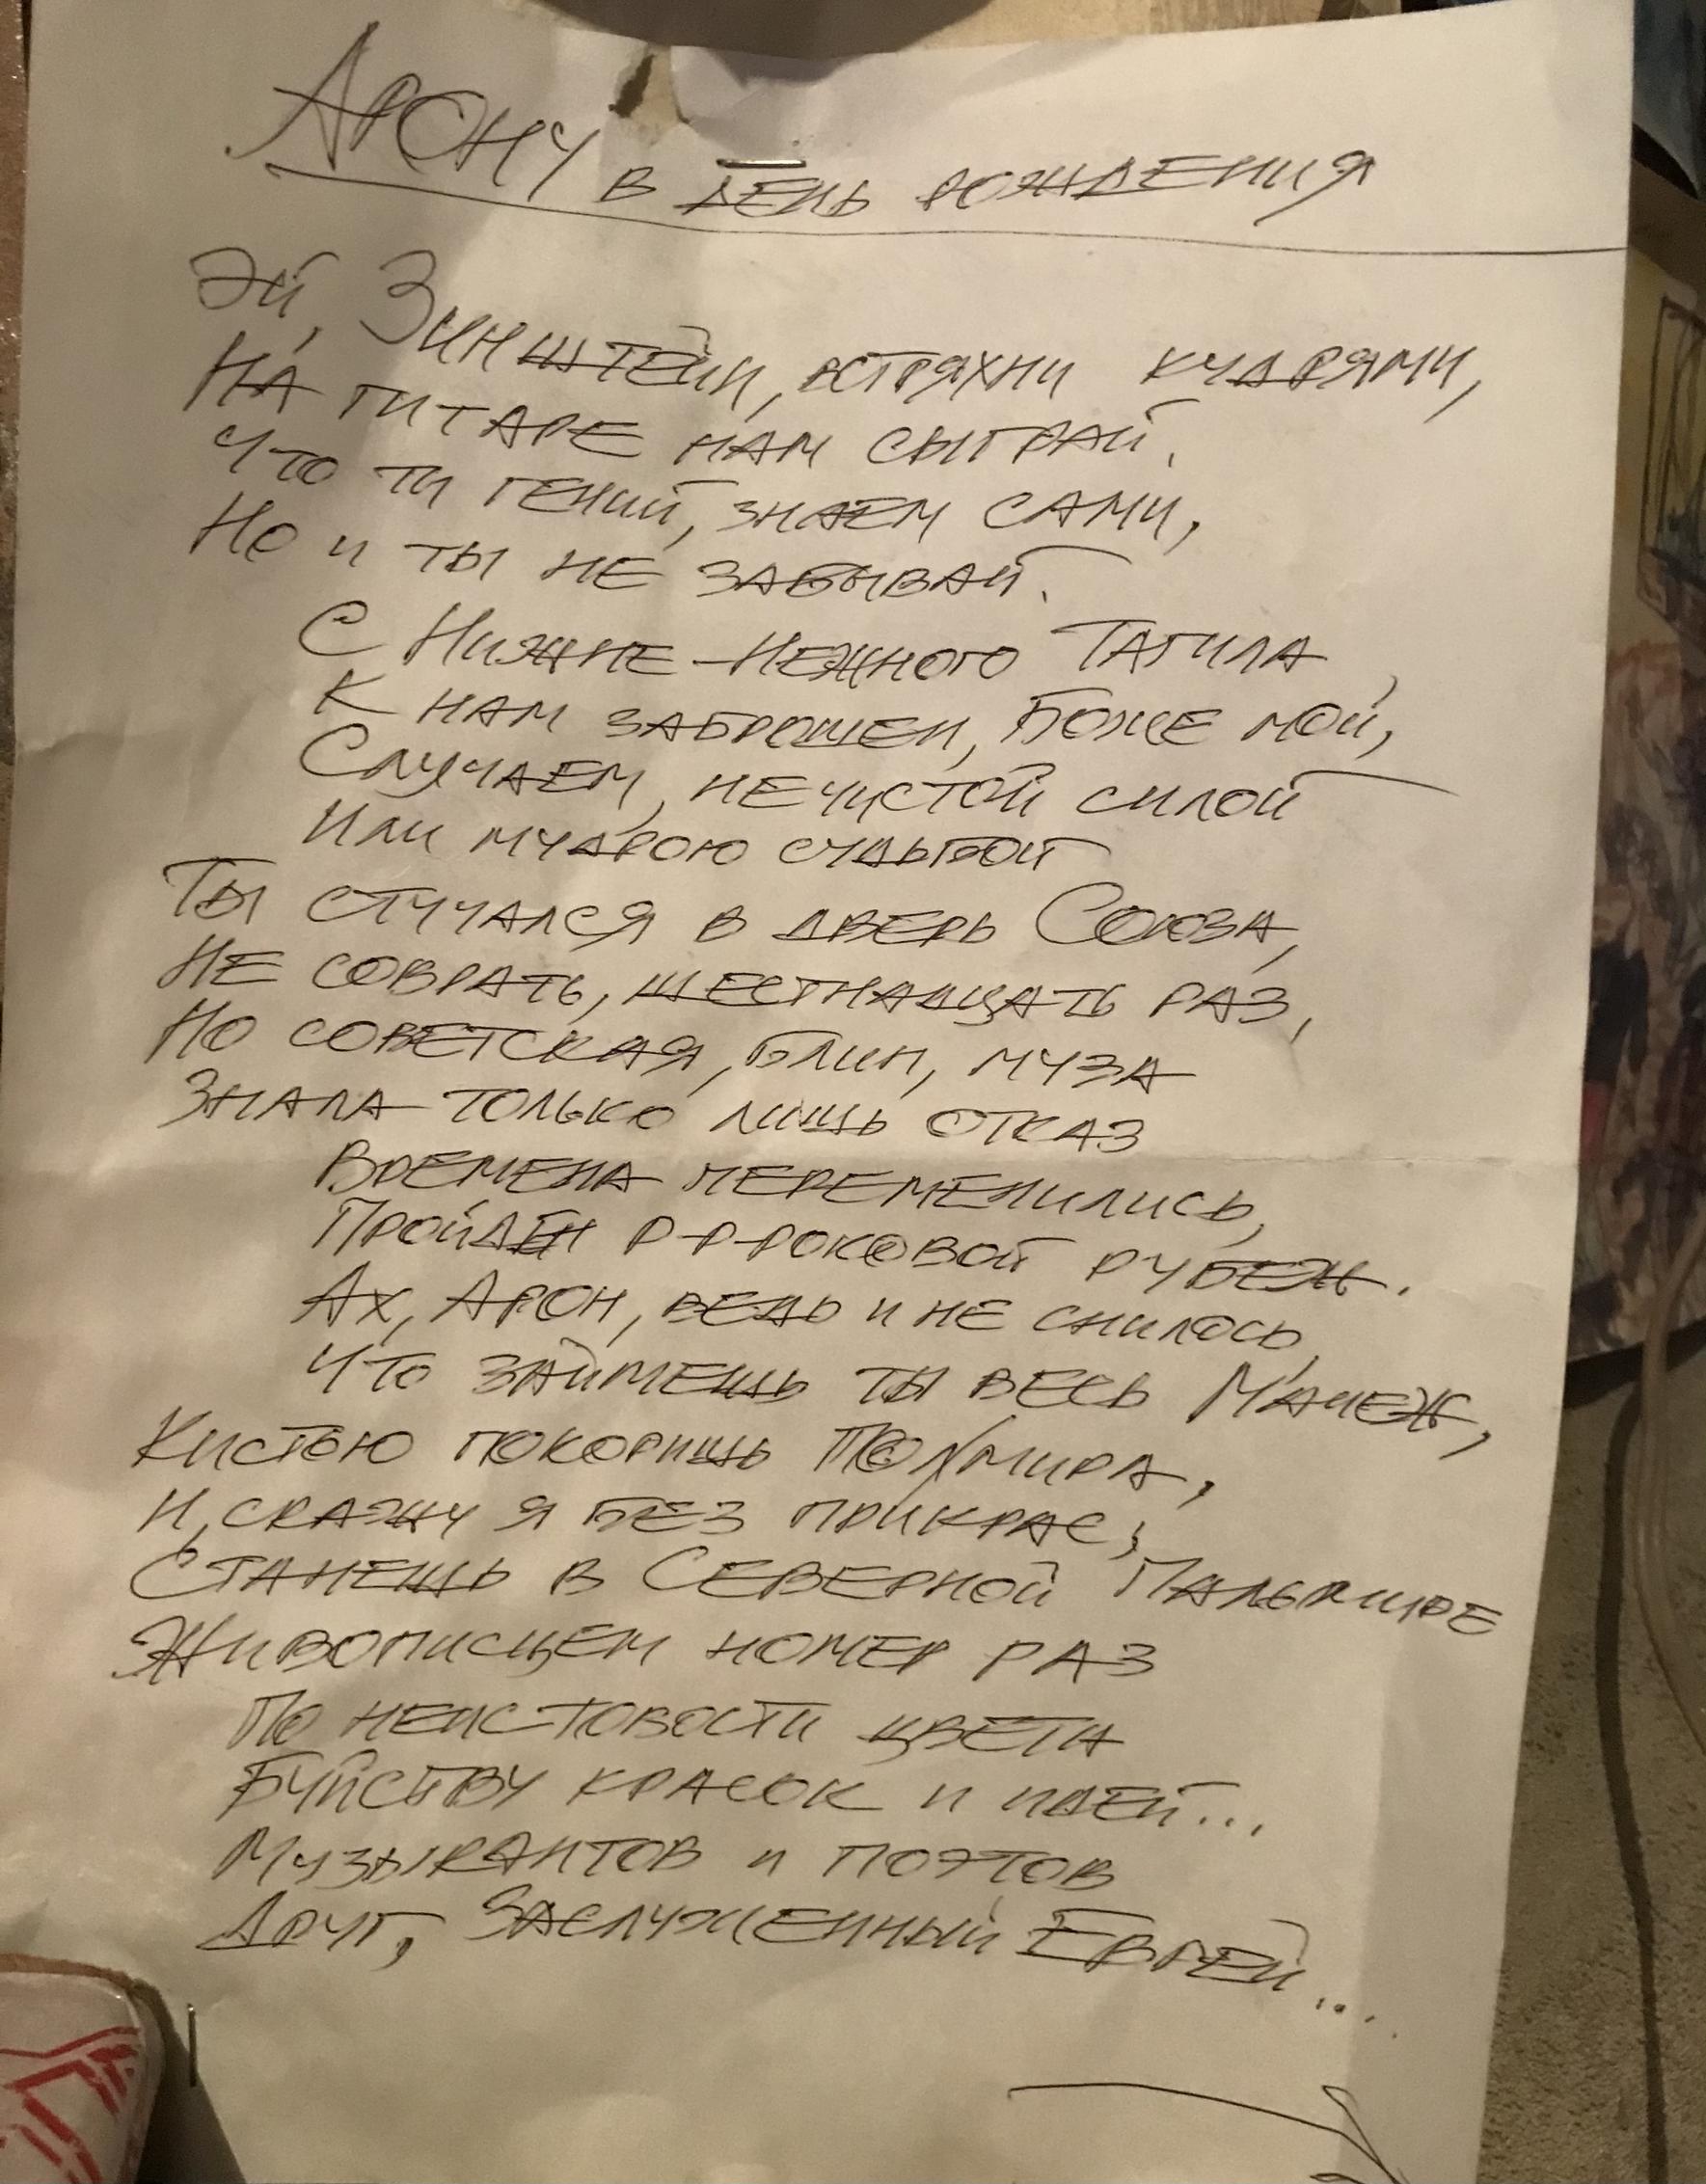 Арону в день рождения
Эй, Зинштейн, встряхни кудрями,
На гитаре нам сыграй.
Что ты гений, знаем сами,
Но и ты не забывай.
С Нижне-Нежного Тагила,
К нам заброшен, Боже мой,
Случаем, нечистой силой
Или мудрою судьбой
Ты стучался в дверь Союза,
Не соврать, шестнадцать раз,
Но советская, блин, муза
Знала только лишь отказ
Времена переменились,
Пройден р-р-роковой рубеж.
Ах, Арон, ведь и не снилось,
Что займешь ты весь Манеж,
Кистью покоришь Полмира,
И, скажу я без прикрас,
Станешь в Северной Пальмире
Живописцем номер раз
По неистовости цвета
Буйству красок и идей...
Музыкантов и поэтов
Друг, Заслуженный Еврей...